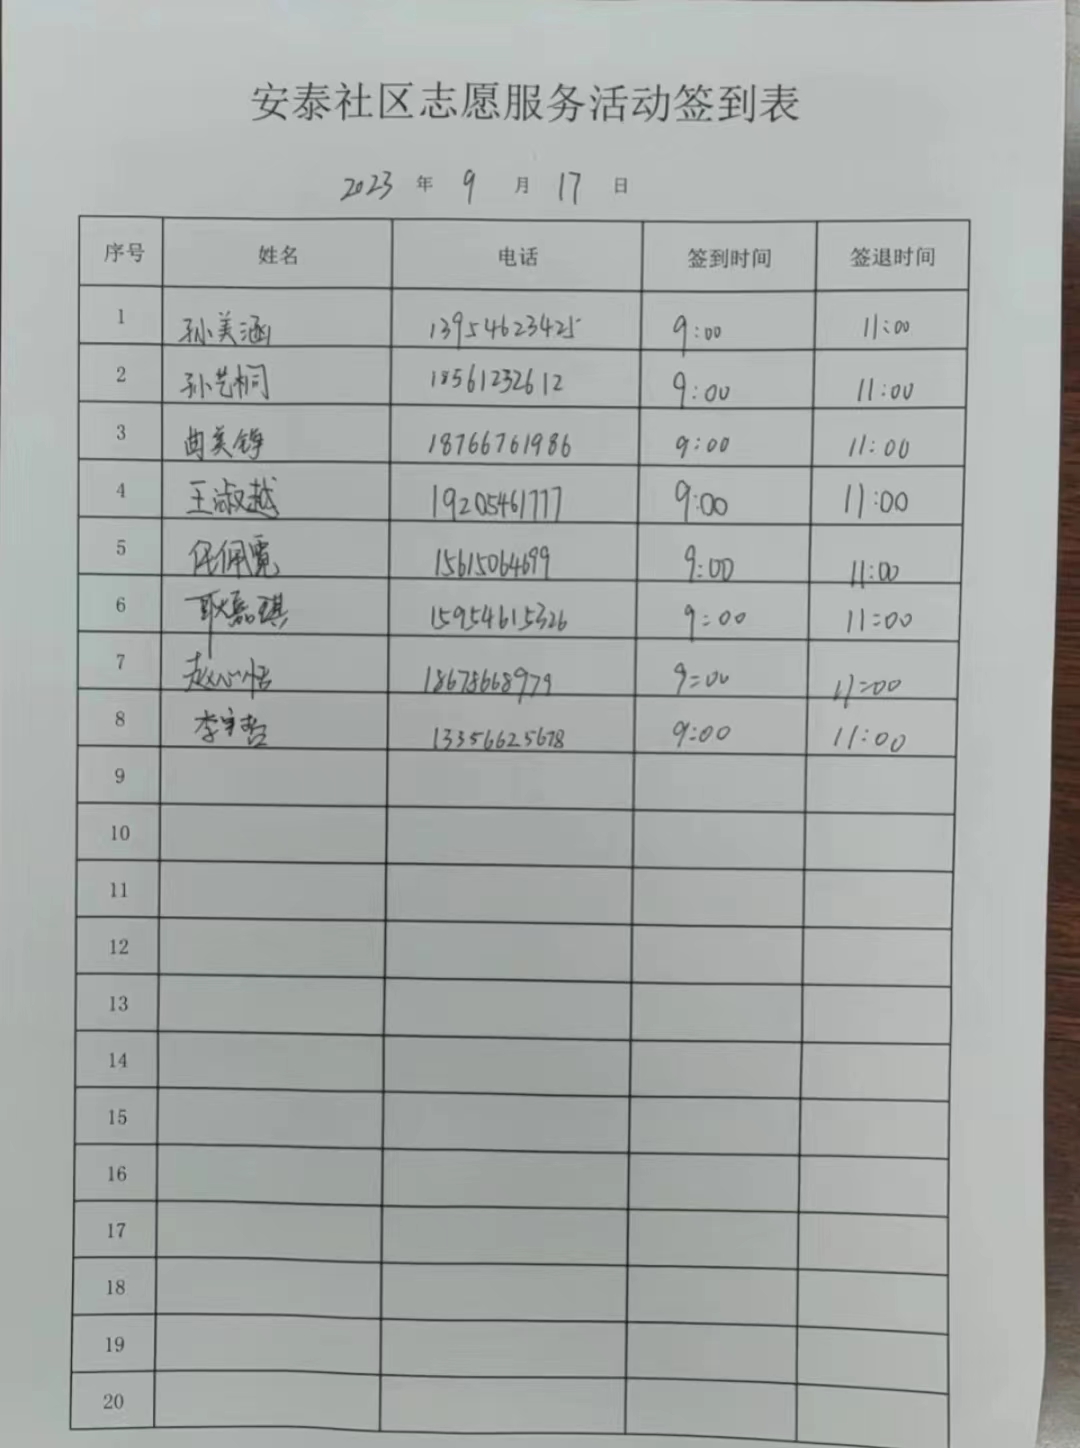 安泰社区志愿服务活动签到表
2023 年 9 月 17 日
序号 姓名 电话 签到时间 签退时间
1 孙美涵 13954623425 9:00 11:00
2 孙艺桐 18561232612 9:00 11:00
3 曲美铮 18766761986 9:00 11:00
4 王淑越 19205461777 9:00 11:00
5 任佩霓 15615064699 9:00 11:00
6 耿嘉琪 15954615326 9:00 11:00
7 赵心怡 18678668979 9:00 11:00
8 李宇哲 13356625678 9:00 11:00
9
10
11
12
13
14
15
16
17
18
19
20